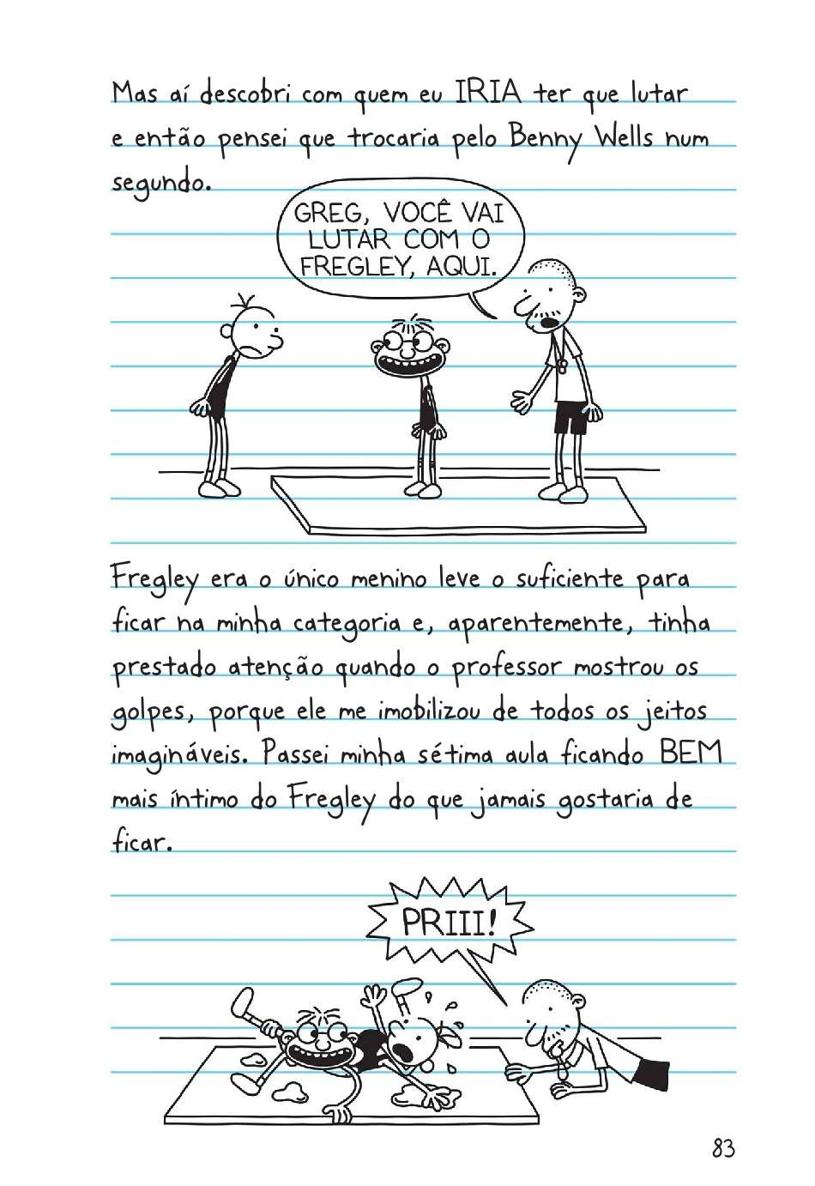 Mas aí descobri com quem eu IRIA ter que lutar
e então pensei que trocaria pelo Benny Wells num
segundo.
GREG, VOCÊ VAI
LUTAR COM O
FREGLEY, AQUI.
Fregley era o único menino leve o suficiente para
ficar na minha categoria e, aparentemente, tinha
prestado atenção quando o professor mostrou os
golpes, porque ele me imobilizou de todos os jeitos
imagináveis. Passei minha sétima aula ficando BEM
mais íntimo do Fregley do que jamais gostaria de
ficar.
PRIII!
83